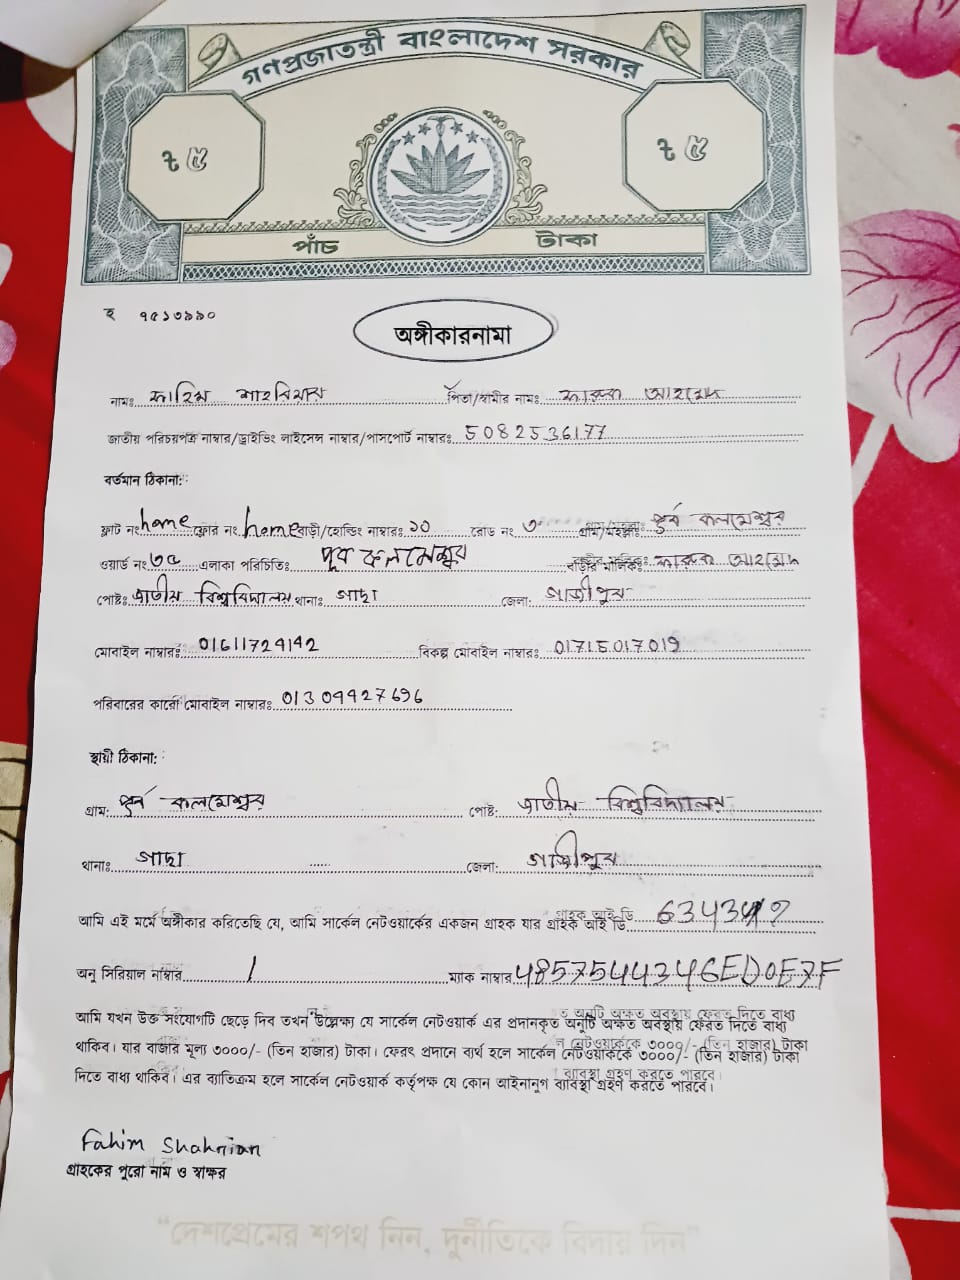 গণপ্রজাতন্ত্রী বাংলাদেশ সরকার
৳ ৫ ৳ ৫
পাঁচ টাকা
হ ৭৫১৩৯৯০
অঙ্গীকারনামা
নামঃ ফাহিম শাহরিয়ার পিতা/স্বামীর নামঃ ফারুক আহমেদ
জাতীয় পরিচয়পত্র নাম্বার/ড্রাইভিং লাইসেন্স নাম্বার/পাসপোর্ট নাম্বারঃ 5082536177
বর্তমান ঠিকানা:
ফ্লাট নং home ফ্লোর নং home বাড়ী/হোল্ডিং নাম্বারঃ ১০ রোড নং ৩ গ্রাম/মহল্লাঃ পূর্ব কলমেশ্বর
ওয়ার্ড নং ৩৫ এলাকা পরিচিতিঃ পূর্ব কলমেশ্বর বাড়ীর মালিকঃ ফারুক আহমেদ
পোষ্টঃ জাতীয় বিশ্ববিদ্যালয় থানাঃ গাছা জেলা: গাজীপুর
মোবাইল নাম্বারঃ 01611724142 বিকল্প মোবাইল নাম্বারঃ 01715017019
পরিবারের কারো মোবাইল নাম্বারঃ 01309927696
স্থায়ী ঠিকানা:
গ্রাম: পূর্ব কলমেশ্বর পোষ্ট: জাতীয় বিশ্ববিদ্যালয়
থানাঃ গাছা জেলা: গাজীপুর
আমি এই মর্মে অঙ্গীকার করিতেছি যে, আমি সার্কেল নেটওয়ার্কের একজন গ্রাহক যার গ্রাহক আই ডি
অনু সিরিয়াল নাম্বার / ম্যাক নাম্বার 485754434GED0E7F
আমি যখন উক্ত সংযোগটি ছেড়ে দিব তখন উল্লেক্ষ্য যে সার্কেল নেটওয়ার্ক এর প্রদানকৃত অনুটি অক্ষত অবস্থায় ফেরত দিতে বাধ্য
থাকিব। যার বাজার মূল্য ৩০০০/- (তিন হাজার) টাকা। ফেরৎ প্রদানে ব্যর্থ হলে সার্কেল নেটওয়ার্ককে ৩০০০/- (তিন হাজার) টাকা
দিতে বাধ্য থাকিব। এর ব্যতিক্রম হলে সার্কেল নেটওয়ার্ক কর্তৃপক্ষ যে কোন আইনানুগ ব্যবিস্থা গ্রহণ করতে পারবে।
Fahim Shahriar
গ্রাহকের পুরো নাম ও স্বাক্ষর
“দেশপ্রেমের শপথ নিন, দুর্নীতিকে বিদায় দিন”